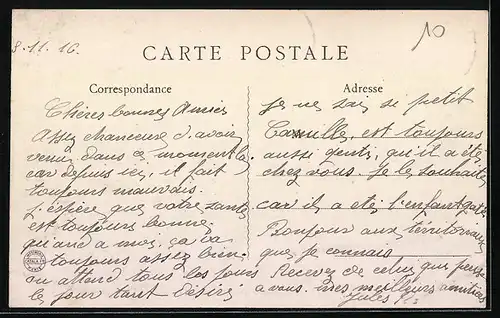 8.11.16.
10
CARTE POSTALE
Correspondance
Chères bonnes Amies
Assez chanceuse d'avoir
venu dans ce moment là,
car depuis ici, il fait
toujours mauvais.
J'espère que votre santé
est toujours bonne
quand a moi, ça va
toujours assez bien.
on attend tous les jours
le jour tant désiré
Adresse
Je ne sais si petit
Camille, est toujours
aussi gentil, qu'il a été
chez vous. Je le souhaite
car il a été l'enfant gâté
Bonjour aux territoriaux
que je connais
Recevez de celui qui pense
a vous. mes meilleurs amitiés
Jules